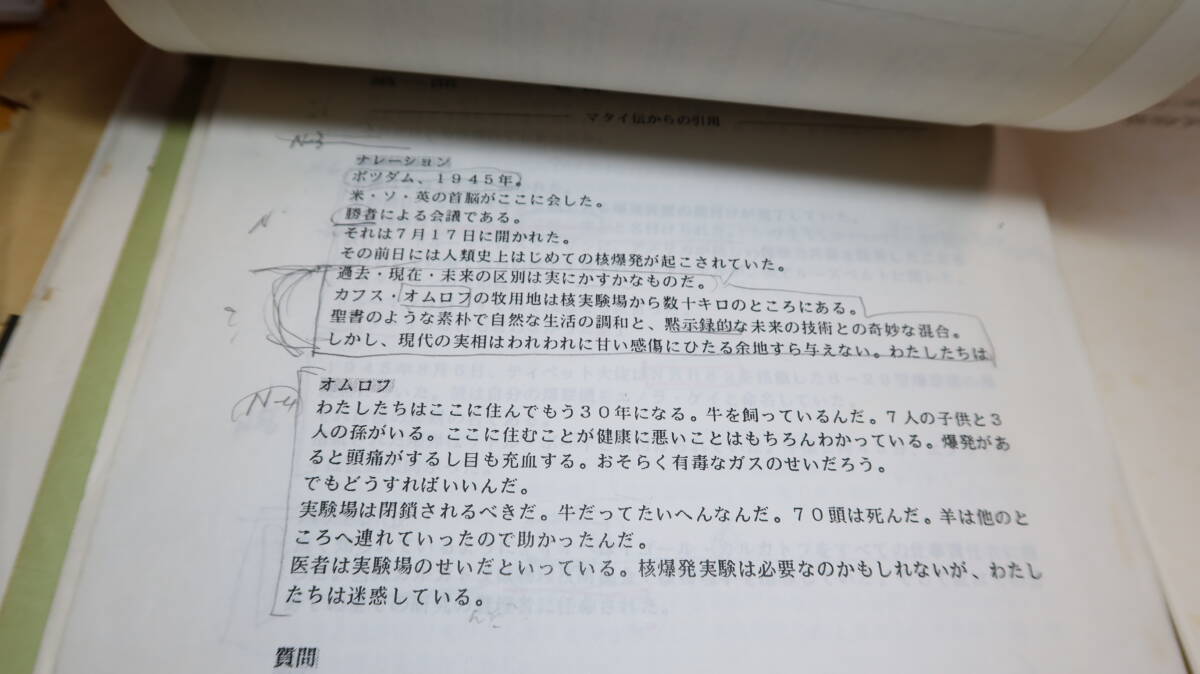 マタイ伝からの引用
N-3
ナレーション
ポツダム、1945年。
米・ソ・英の首脳がここに会した。
勝者による会議である。
それは7月17日に開かれた。
その前日には人類史上はじめての核爆発が起こされていた。
過去・現在・未来の区別は実にかすかなものだ。
カフス・オムロフの牧用地は核実験場から数十キロのところにある。
聖書のような素朴で自然な生活の調和と、黙示録的な未来の技術との奇妙な混合。
しかし、現代の実相はわれわれに甘い感傷にひたる余地すら与えない。わたしたちは
N-4
オムロフ
わたしたちはここに住んでもう30年になる。牛を飼っているんだ。7人の子供と3
人の孫がいる。ここに住むことが健康に悪いことはもちろんわかっている。爆発があ
ると頭痛がするし目も充血する。おそらく有毒なガスのせいだろう。
でもどうすればいいんだ。
実験場は閉鎖されるべきだ。牛だってたいへんなんだ。70頭は死んだ。羊は他のと
ころへ連れていったので助かったんだ。
医者は実験場のせいだといっている。核爆発実験は必要なのかもしれないが、わたし
たちは迷惑している。
んだ
質問